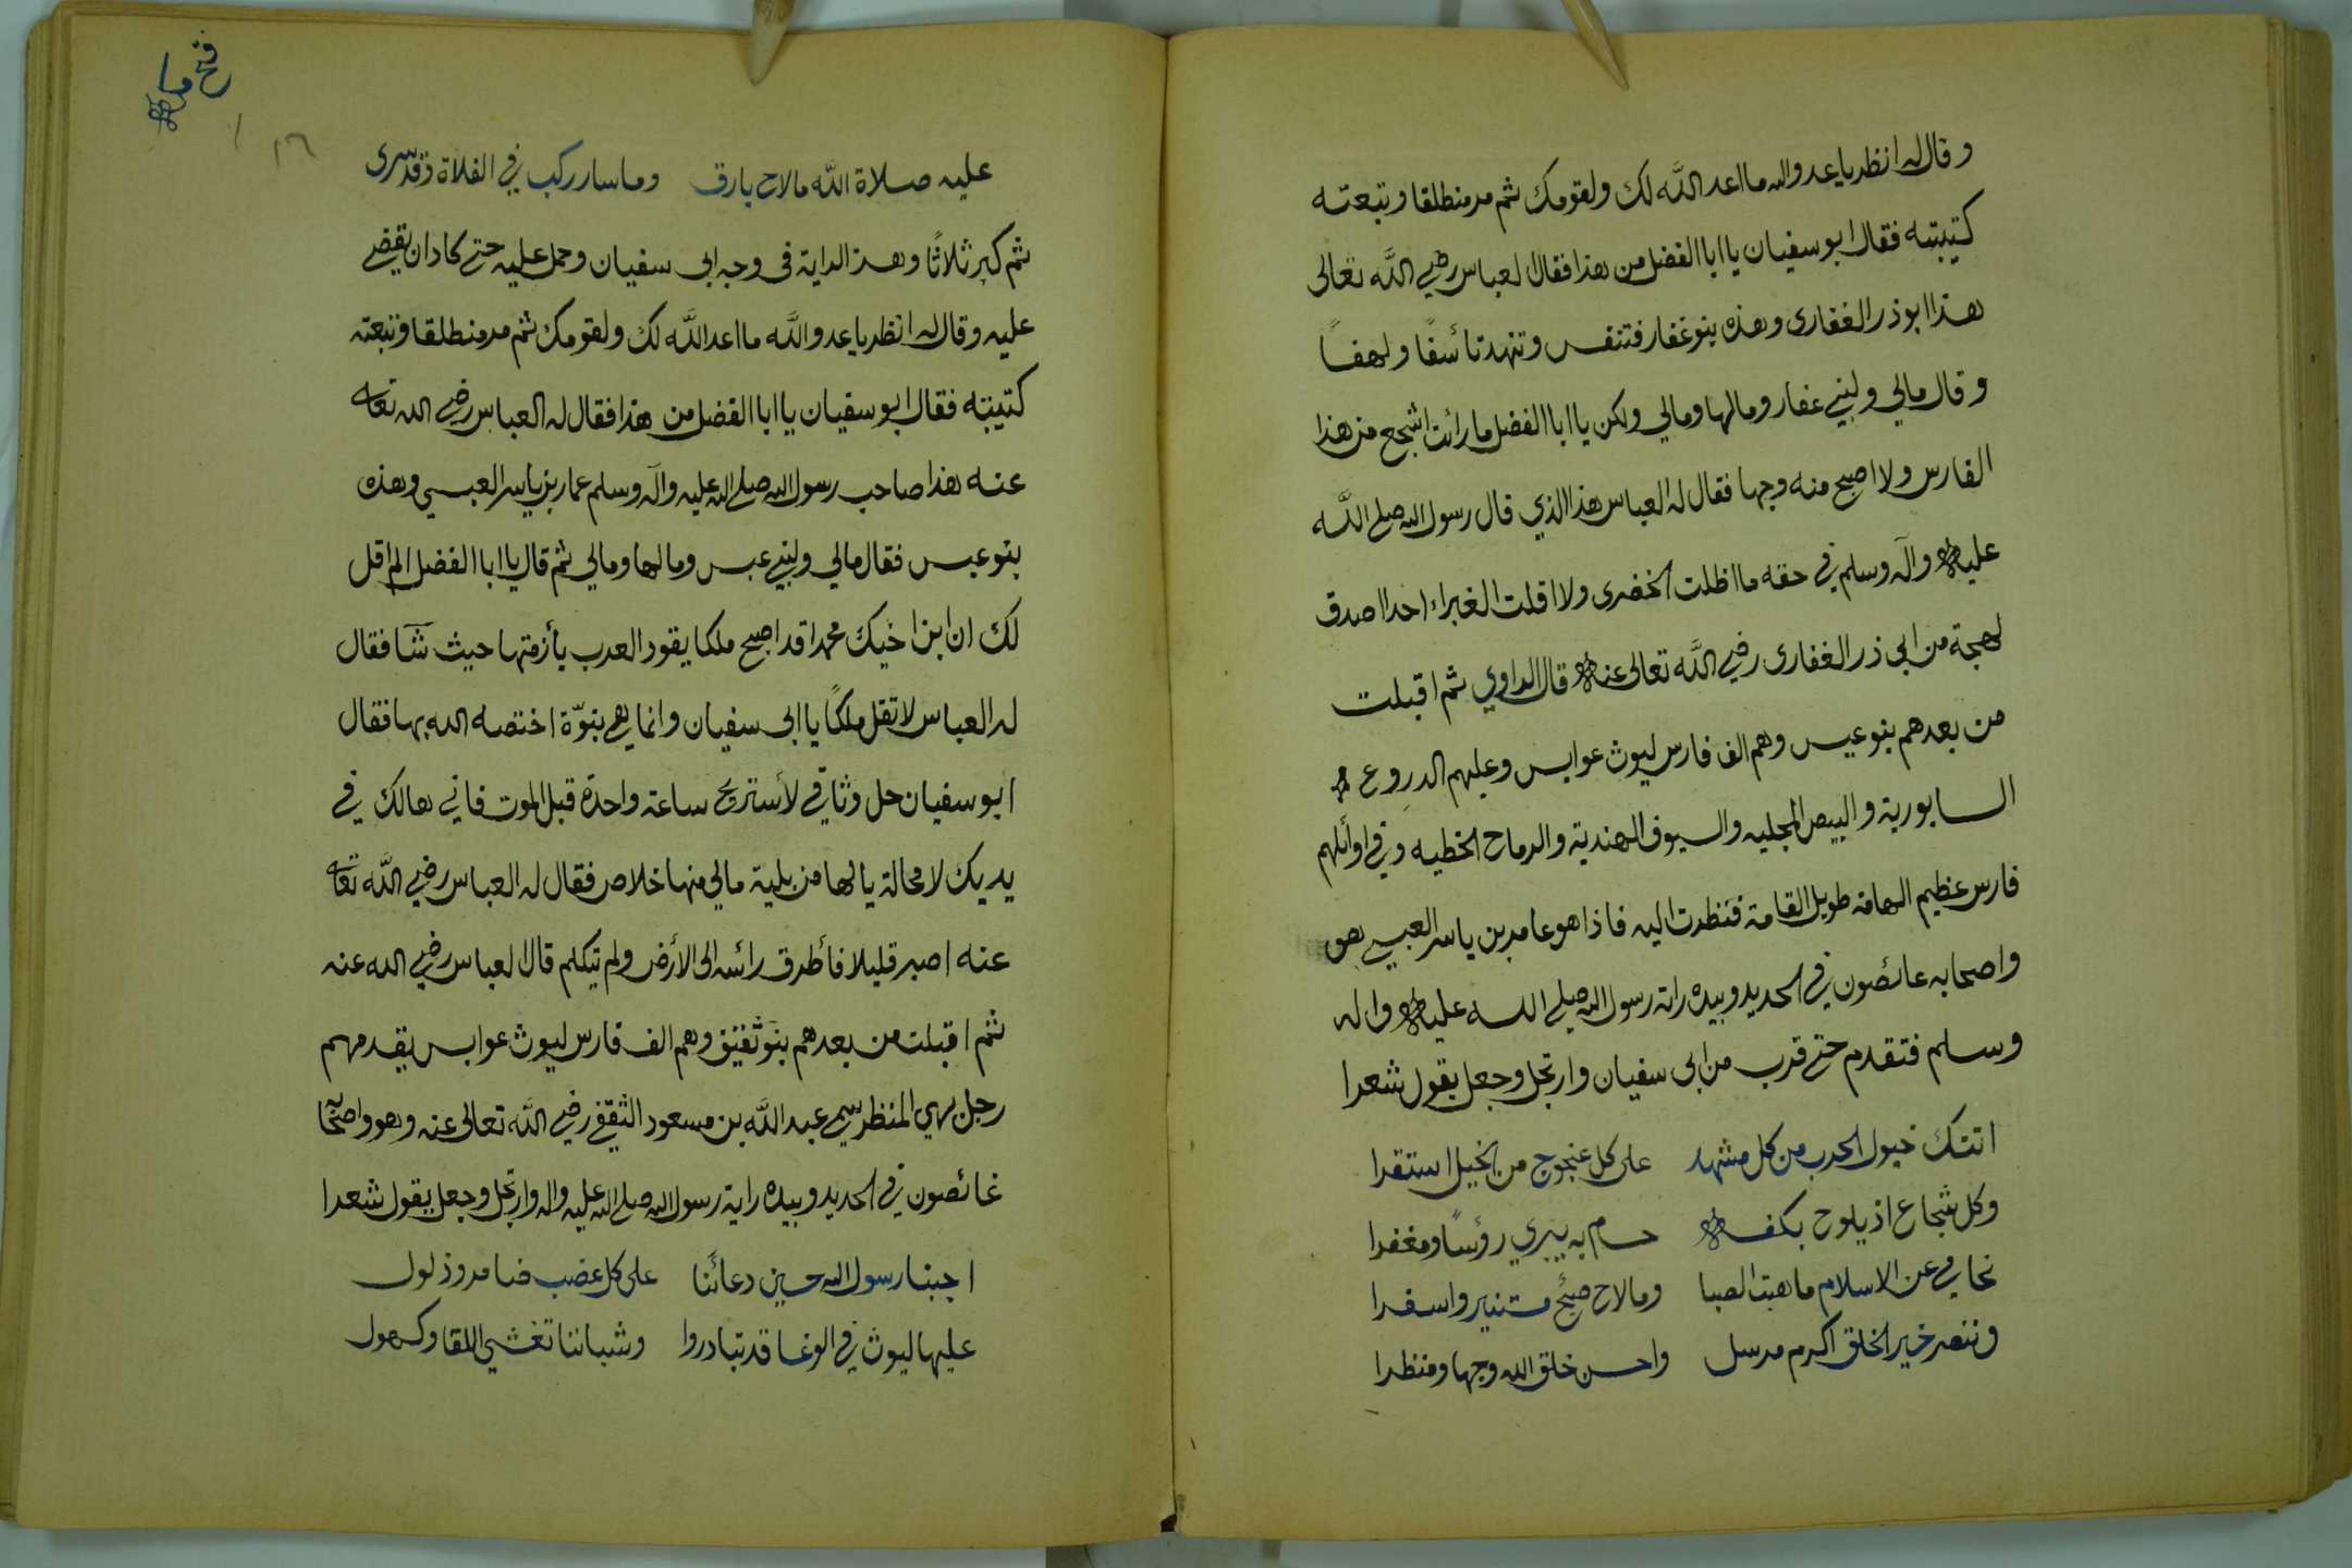 وقال له انظر يا عدو الله ما اعد اللَّه لك ولقومك ثم مر منطلقا وتبعته
كتيبته فقال ابو سفيان يا ابا الفضل من هذا فقال العباس رضي اللَّه تعالى
هذا ابوذر الغفارى وهذه بنو غفار فتنفس وتنهد تأسفًا ولهفًا
وقال مالي ولبني غفار ومالها ومالي ولكن يا ابا الفضل ما رائت اشجع من هذا
الفارس ولا اصبح منه وجها فقال له العباس هذا الذي قال رسول الله صلى اللَّه
عليه وآله وسلم في حقه ما اظلت الخضرى ولا اقلت الغبراء احدا اصدق
لهجة من ابي ذر الغفارى رضي اللَّه تعالى عنه قال الراوي ثم اقبلت
من بعدهم بنو عبس وهم الف فارس ليوث عوابس وعليهم الدروع
السابورية والبيض المجليه والسيوف الهندية والرماح الخطيه وفي اوائلهم
فارس عظيم الهامه طويل القامة فنظرت اليه فاذا هو عامر بن ياسر العبسي هو
واصحابه عائصون في الحديد وبيده راية رسول الله صلى الله عليه واله
وسلم فتقدم حتى قرب من ابى سفيان وارتجل وجعل يقول شعرا
اتتك خيول الحرب من كل مشهد على كل عنجوج من الخيل استقرا
وكل شجاع اذ يلوح بكفه حسام به يبري رؤسًا ومغفرا
نحامي عن الاسلام ما هبت الصبا وما لاح صبح مستنير واسفرا
وننصر خير الخلق اكرم مرسل واحسن خلق الله وجها ومنظرا
فتح
١٦
عليه صلاة اللَّه ما لاح بارق وما سار ركب في الفلاة وقد سرى
ثم كبر ثلاثًا وهز الراية فى وجه ابى سفيان وحمل عليه حتى كاد ان يقضي
عليه وقال له انظر يا عدو اللَّه ما اعد اللَّه لك ولقومك ثم مر منطلقا وتبعته
كتيبته فقال ابو سفيان يا ابا الفضل من هذا فقال له العباس رضي الله تعا
عنه هذا صاحب رسول الله صلى الله عليه وآله وسلم عمار بن ياسر العبسي وهذه
بنو عبس فقال مالي ولبني عبس ومالها ومالي ثم قال يا ابا الفضل الم اقل
لك ان ابن اخيك محمدا قد اصبح ملكا يقود العرب بأزمتها حيث شآ فقال
له العباس لا تقل ملكًا يا ابى سفيان وانما هي نبوّة اختصه الله بها فقال
ابو سفيان حل وثاقي لأستريح ساعة واحدة قبل الموت فاني هالك في
يديك لا محالة يا لها من بلية مالي منها خلاص فقال له العباس رضي اللَّه تعا
عنه اصبر قليلا فأطرق رائسه الى الأرض ولم يتكلم قال العباس رضي الله عنه
ثم اقبلت من بعدهم بنو ثقيف وهم الف فارس ليوث عوابس يقدمهم
رجل بهي المنظر يسمى عبد اللَّه بن مسعود الثقفي رضي اللَّه تعالى عنه وهو واصحآ
غائصون في الحديد وبيده راية رسول الله صلى الله عليه واله وارتجل وجعل يقول شعرا
اجبنا رسول الله حين دعائنا على كل عضب ضامر وذلول
عليها ليوث في الوغا قد تبادروا وشباننا تغشي اللقا وكهول